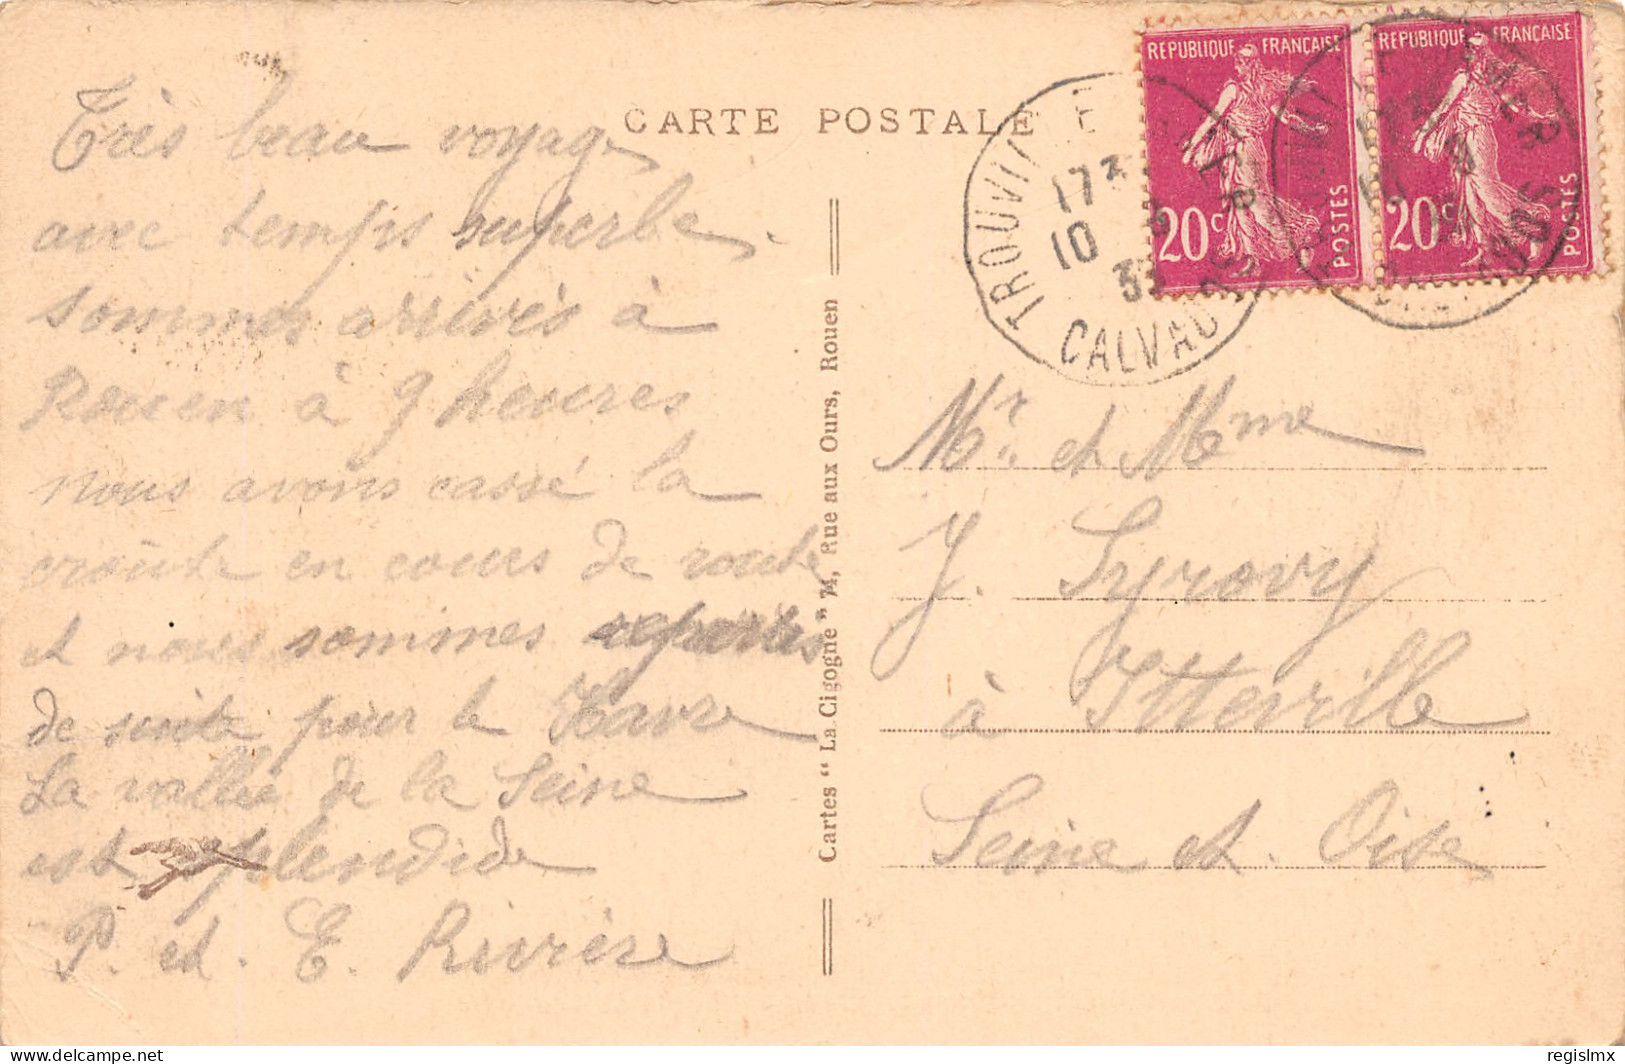 CARTE POSTALE
Très beau voyage
avec temps superbe.
sommes arrivés à
Rouen à 9 heures
nous avons cassé la
croûte en cours de route
et nous sommes repartis
de suite pour le Havre
La vallée de la Seine
est splendide
P. et E. Rivière
Cartes "La Cigogne" 74, Rue aux Ours, Rouen
REPUBLIQUE FRANÇAISE
20c POSTES
REPUBLIQUE FRANÇAISE
20c POSTES
TROUVI
17 3
10
33
CALVADOS
Mr. et Mme
J. Syrovy
à Itteville
Seine et Oise
delcampe.net
regislmx